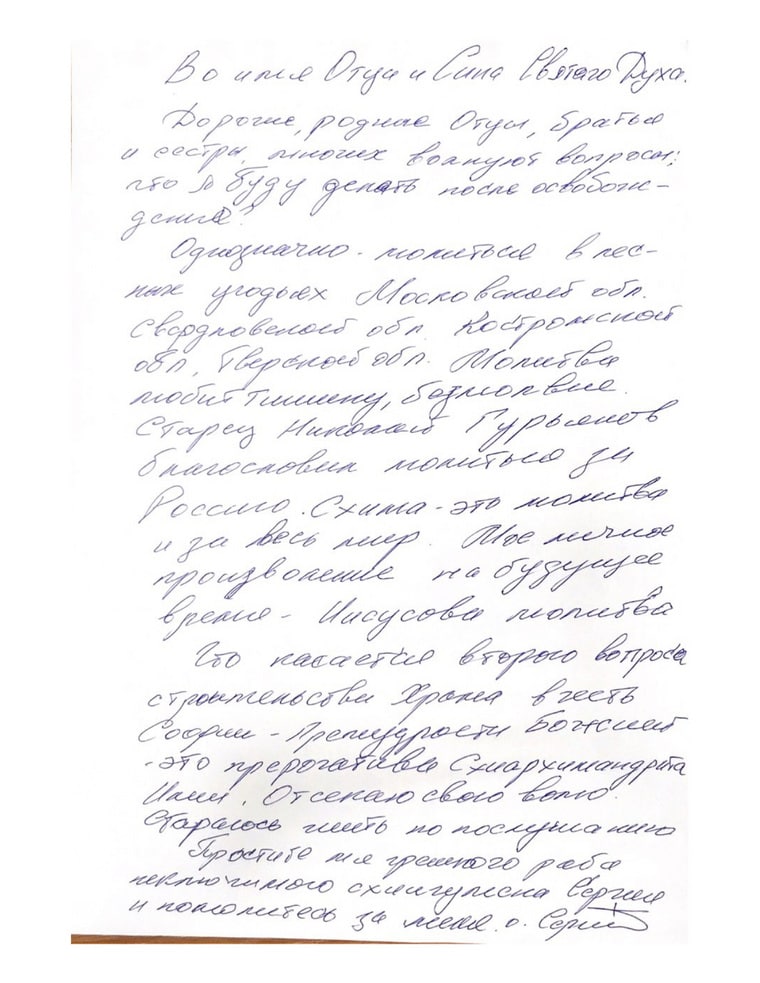 Во имя Отца и Сина Святаго Духа.
Дорогие, родные Отцы, братья
и сестры, многих волнуют вопросы:
что я буду делать после освобож-
дения?
Однозначно - молиться в лес-
ных угодьях Московской обл.
Свердловской обл. Костромской
обл, Тверской обл. Молитва
любит тишину, безмолвие.
Старец Николай Гурьянов
благословил молиться за
Россию. Схима - это молитва
и за весь мир. Мое личное
произволение на будущее
время - Иисусова молитва
Что касается второго вопроса
строительства Храма в честь
Софии - Премудрости Божией
- это прерогатива Схиархимандрита
Илии. Отсекаю свою волю.
Стараюсь жить по послушанию
Простите мя грешного раба
неключимого схиигумена Сергия
и помолитесь за меня. о. Сергий